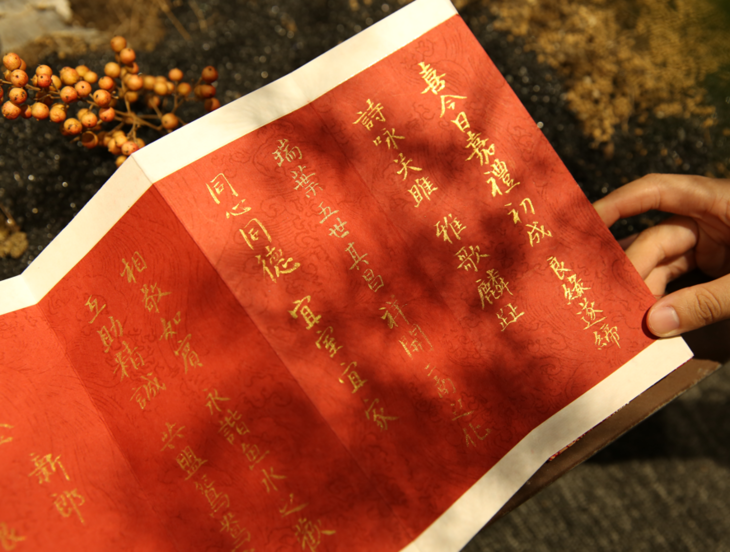 喜今日嘉禮初成 良緣遂締
詩咏关雎 雅歌麟趾
瑞葉五世其昌 祥開二南之化
同心同德 宜室宜家
相敬如賓 永諧魚水之歡
互助精誠 共盟鴛鴦
新郎